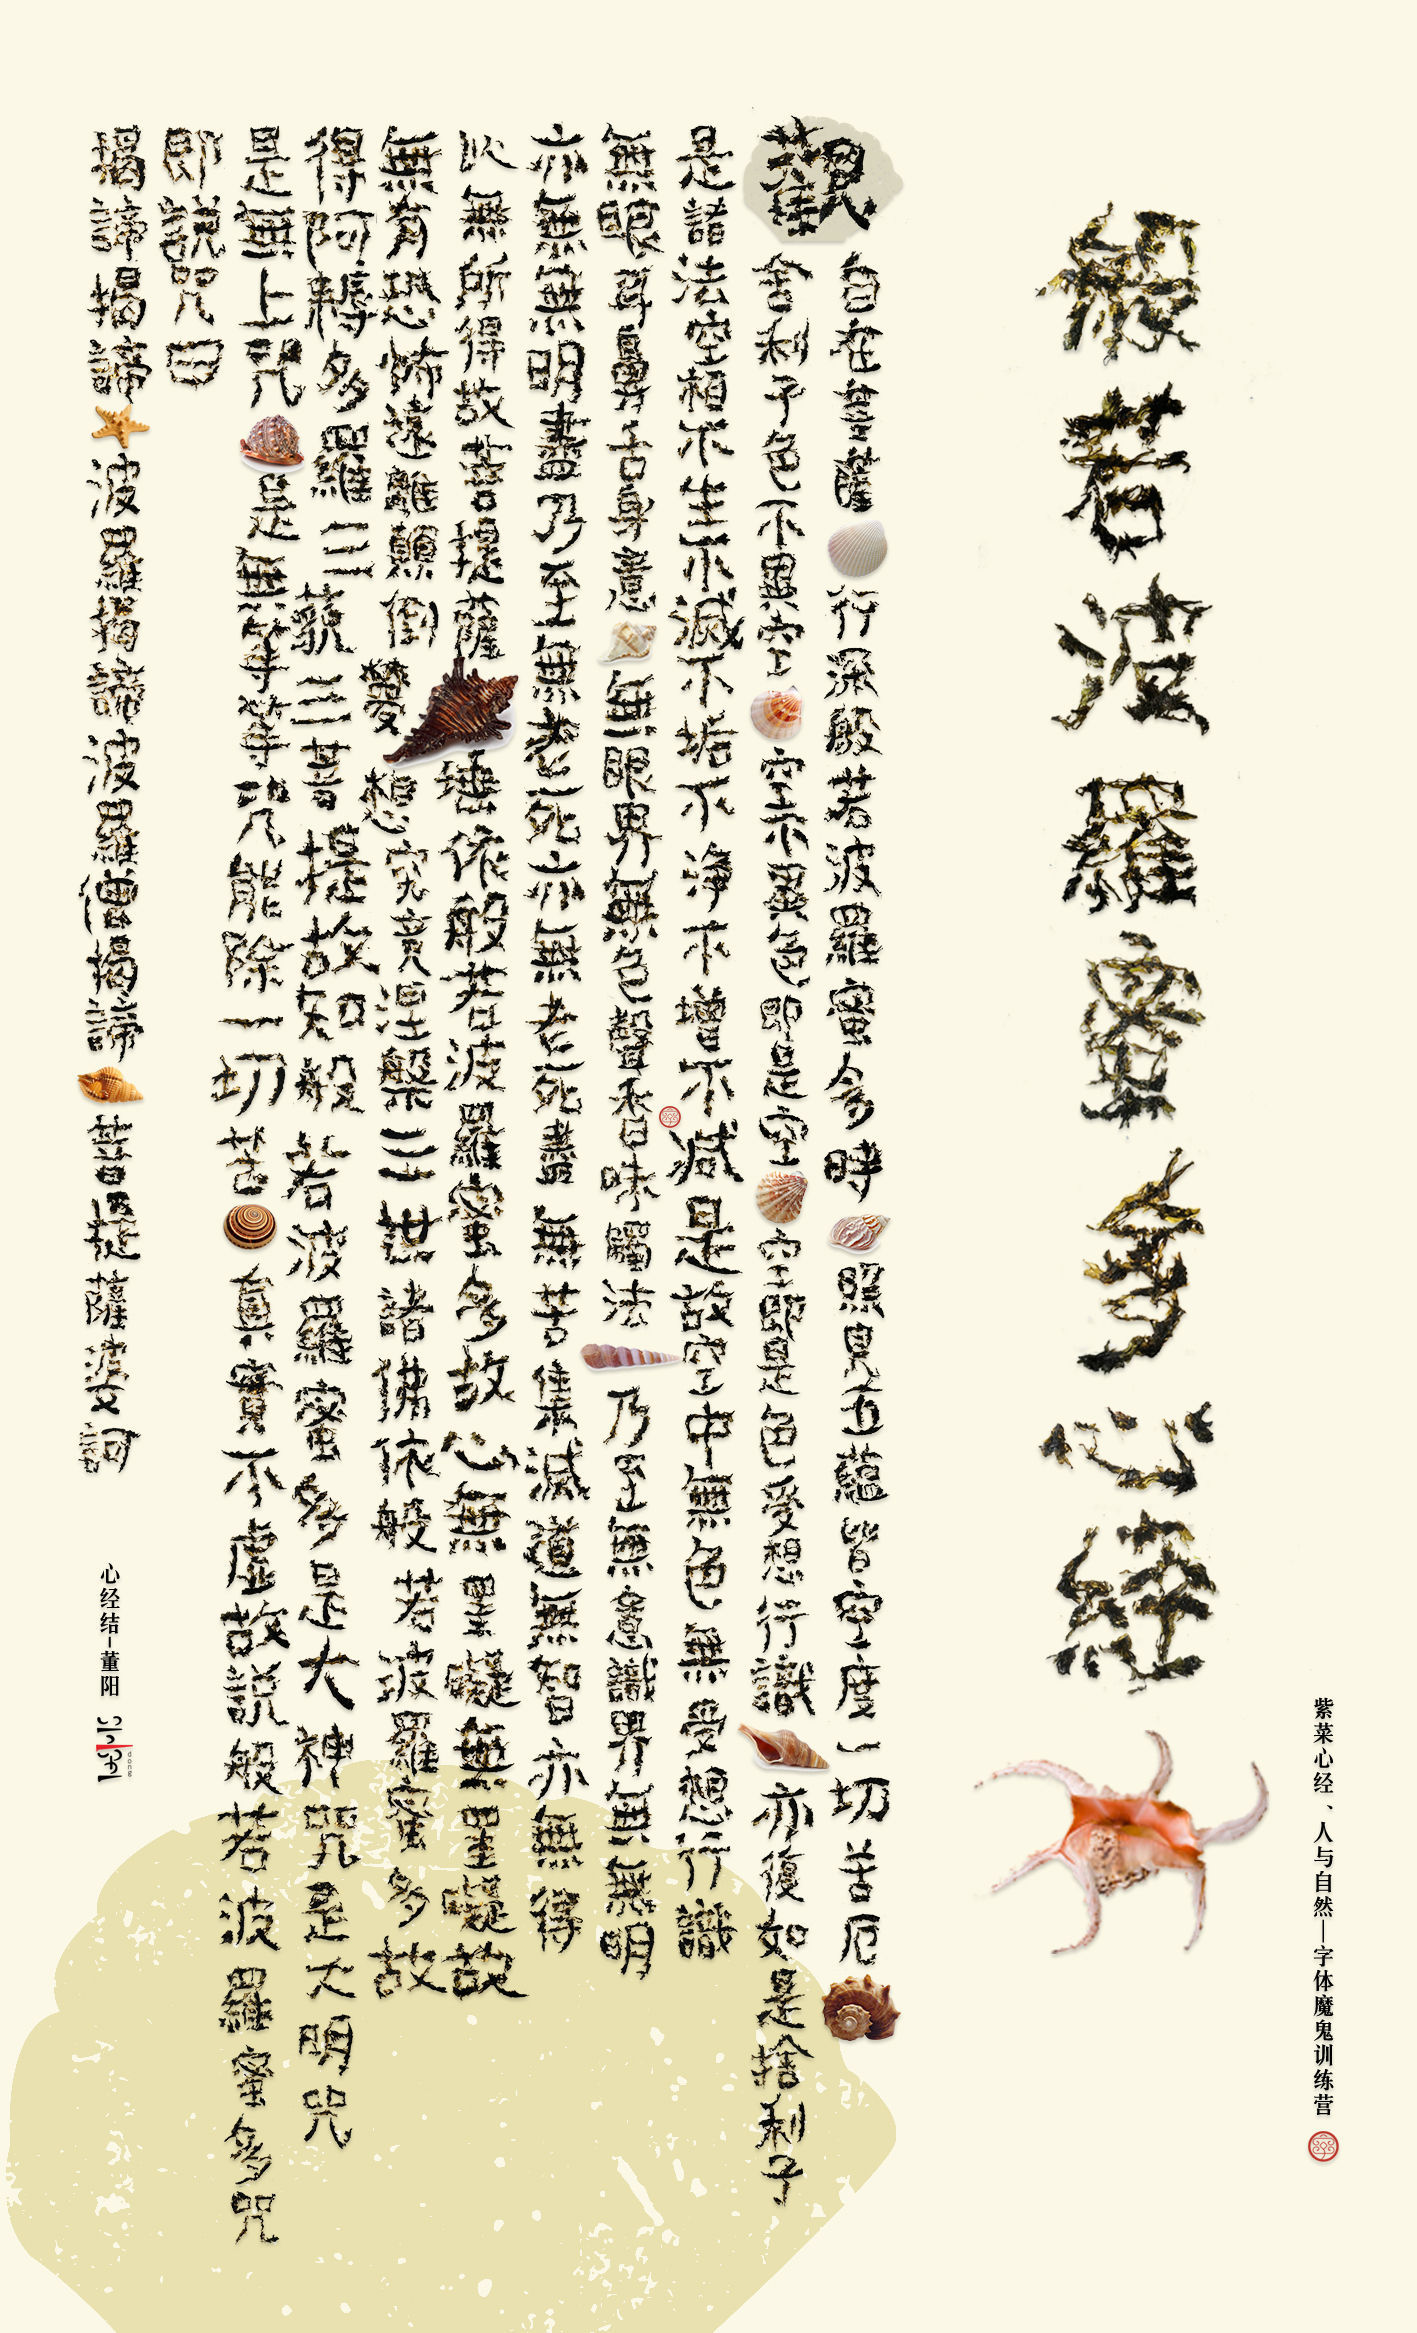 紫菜心经、人与自然—字体魔鬼训练营
般若波羅蜜多心經
觀自在菩薩行深般若波羅蜜多時照見五蘊皆空度一切苦厄
舍利子色不異空空不異色即是空空即是色受想行識亦復如是捨利子
是諸法空相不生不滅不垢不淨不增不減是故空中無色無受想行識
無眼耳鼻舌身意無眼界無色聲香味觸法乃至無意識界無無明
亦無無明盡乃至無老死亦無老死盡無苦集滅道無智亦無得
以無所得故菩提薩埵依般若波羅蜜多故心無罣礙無罣礙故
無有恐怖遠離顛倒夢想究竟涅槃三世諸佛依般若波羅蜜多故
得阿耨多羅三藐三菩提故知般若波羅蜜多是大神咒是大明咒
是無上咒是無等等咒能除一切苦真實不虛故説般若波羅蜜多咒
即説咒曰
揭諦揭諦波羅揭諦波羅僧揭諦菩提薩婆訶
心经结–董阳
dong